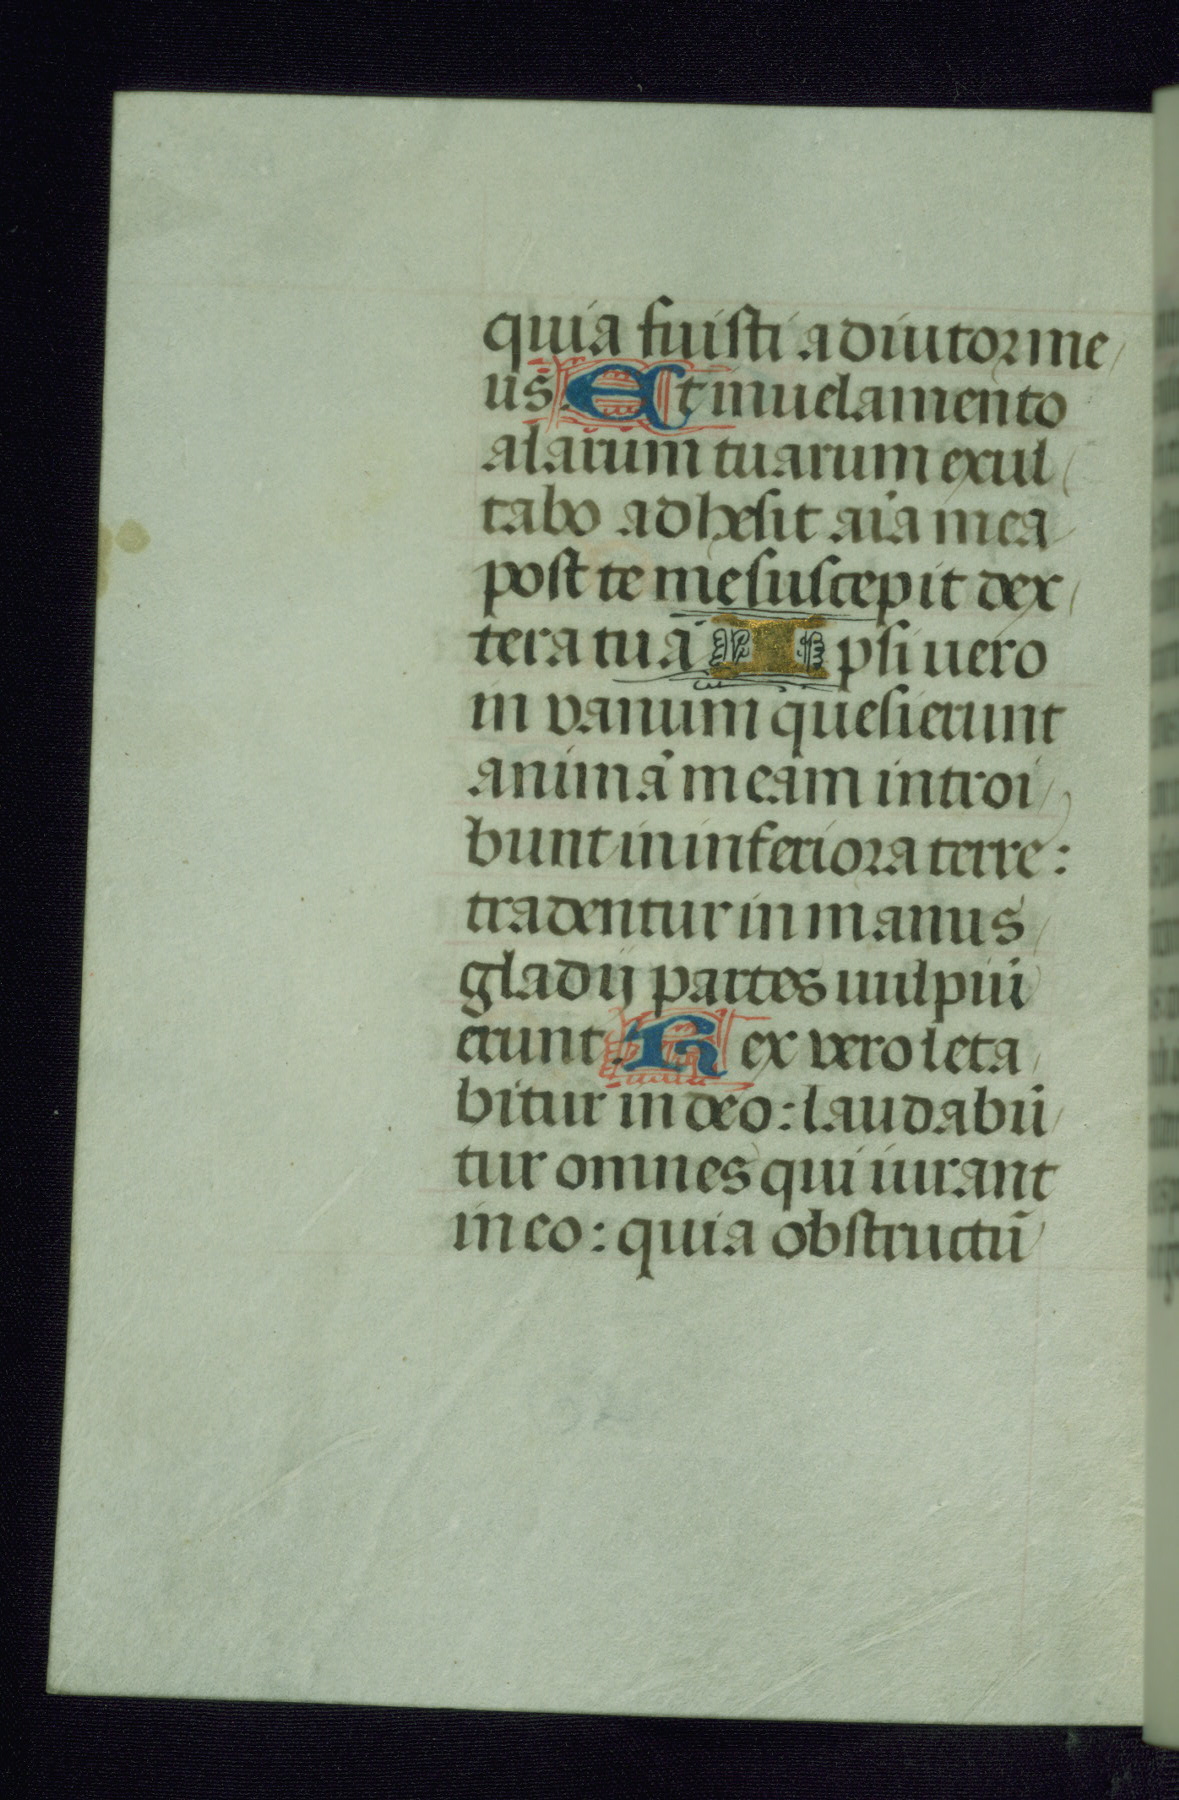 quia fuisti adiutor me/
us. Et in uelamento
alarum tuarum exul/
tabo adhesit aīa mea
post te me suscepit dex/
tera tuā Ipsi uero
in vanum quesierunt
animā meam introi/
bunt in inferiora terre:
tradentur in manus
gladij partes uulpiū
erunt. Rex vero leta/
bitur in deo: laudabū/
tur omnes qui iurant
in eo: quia obstructū